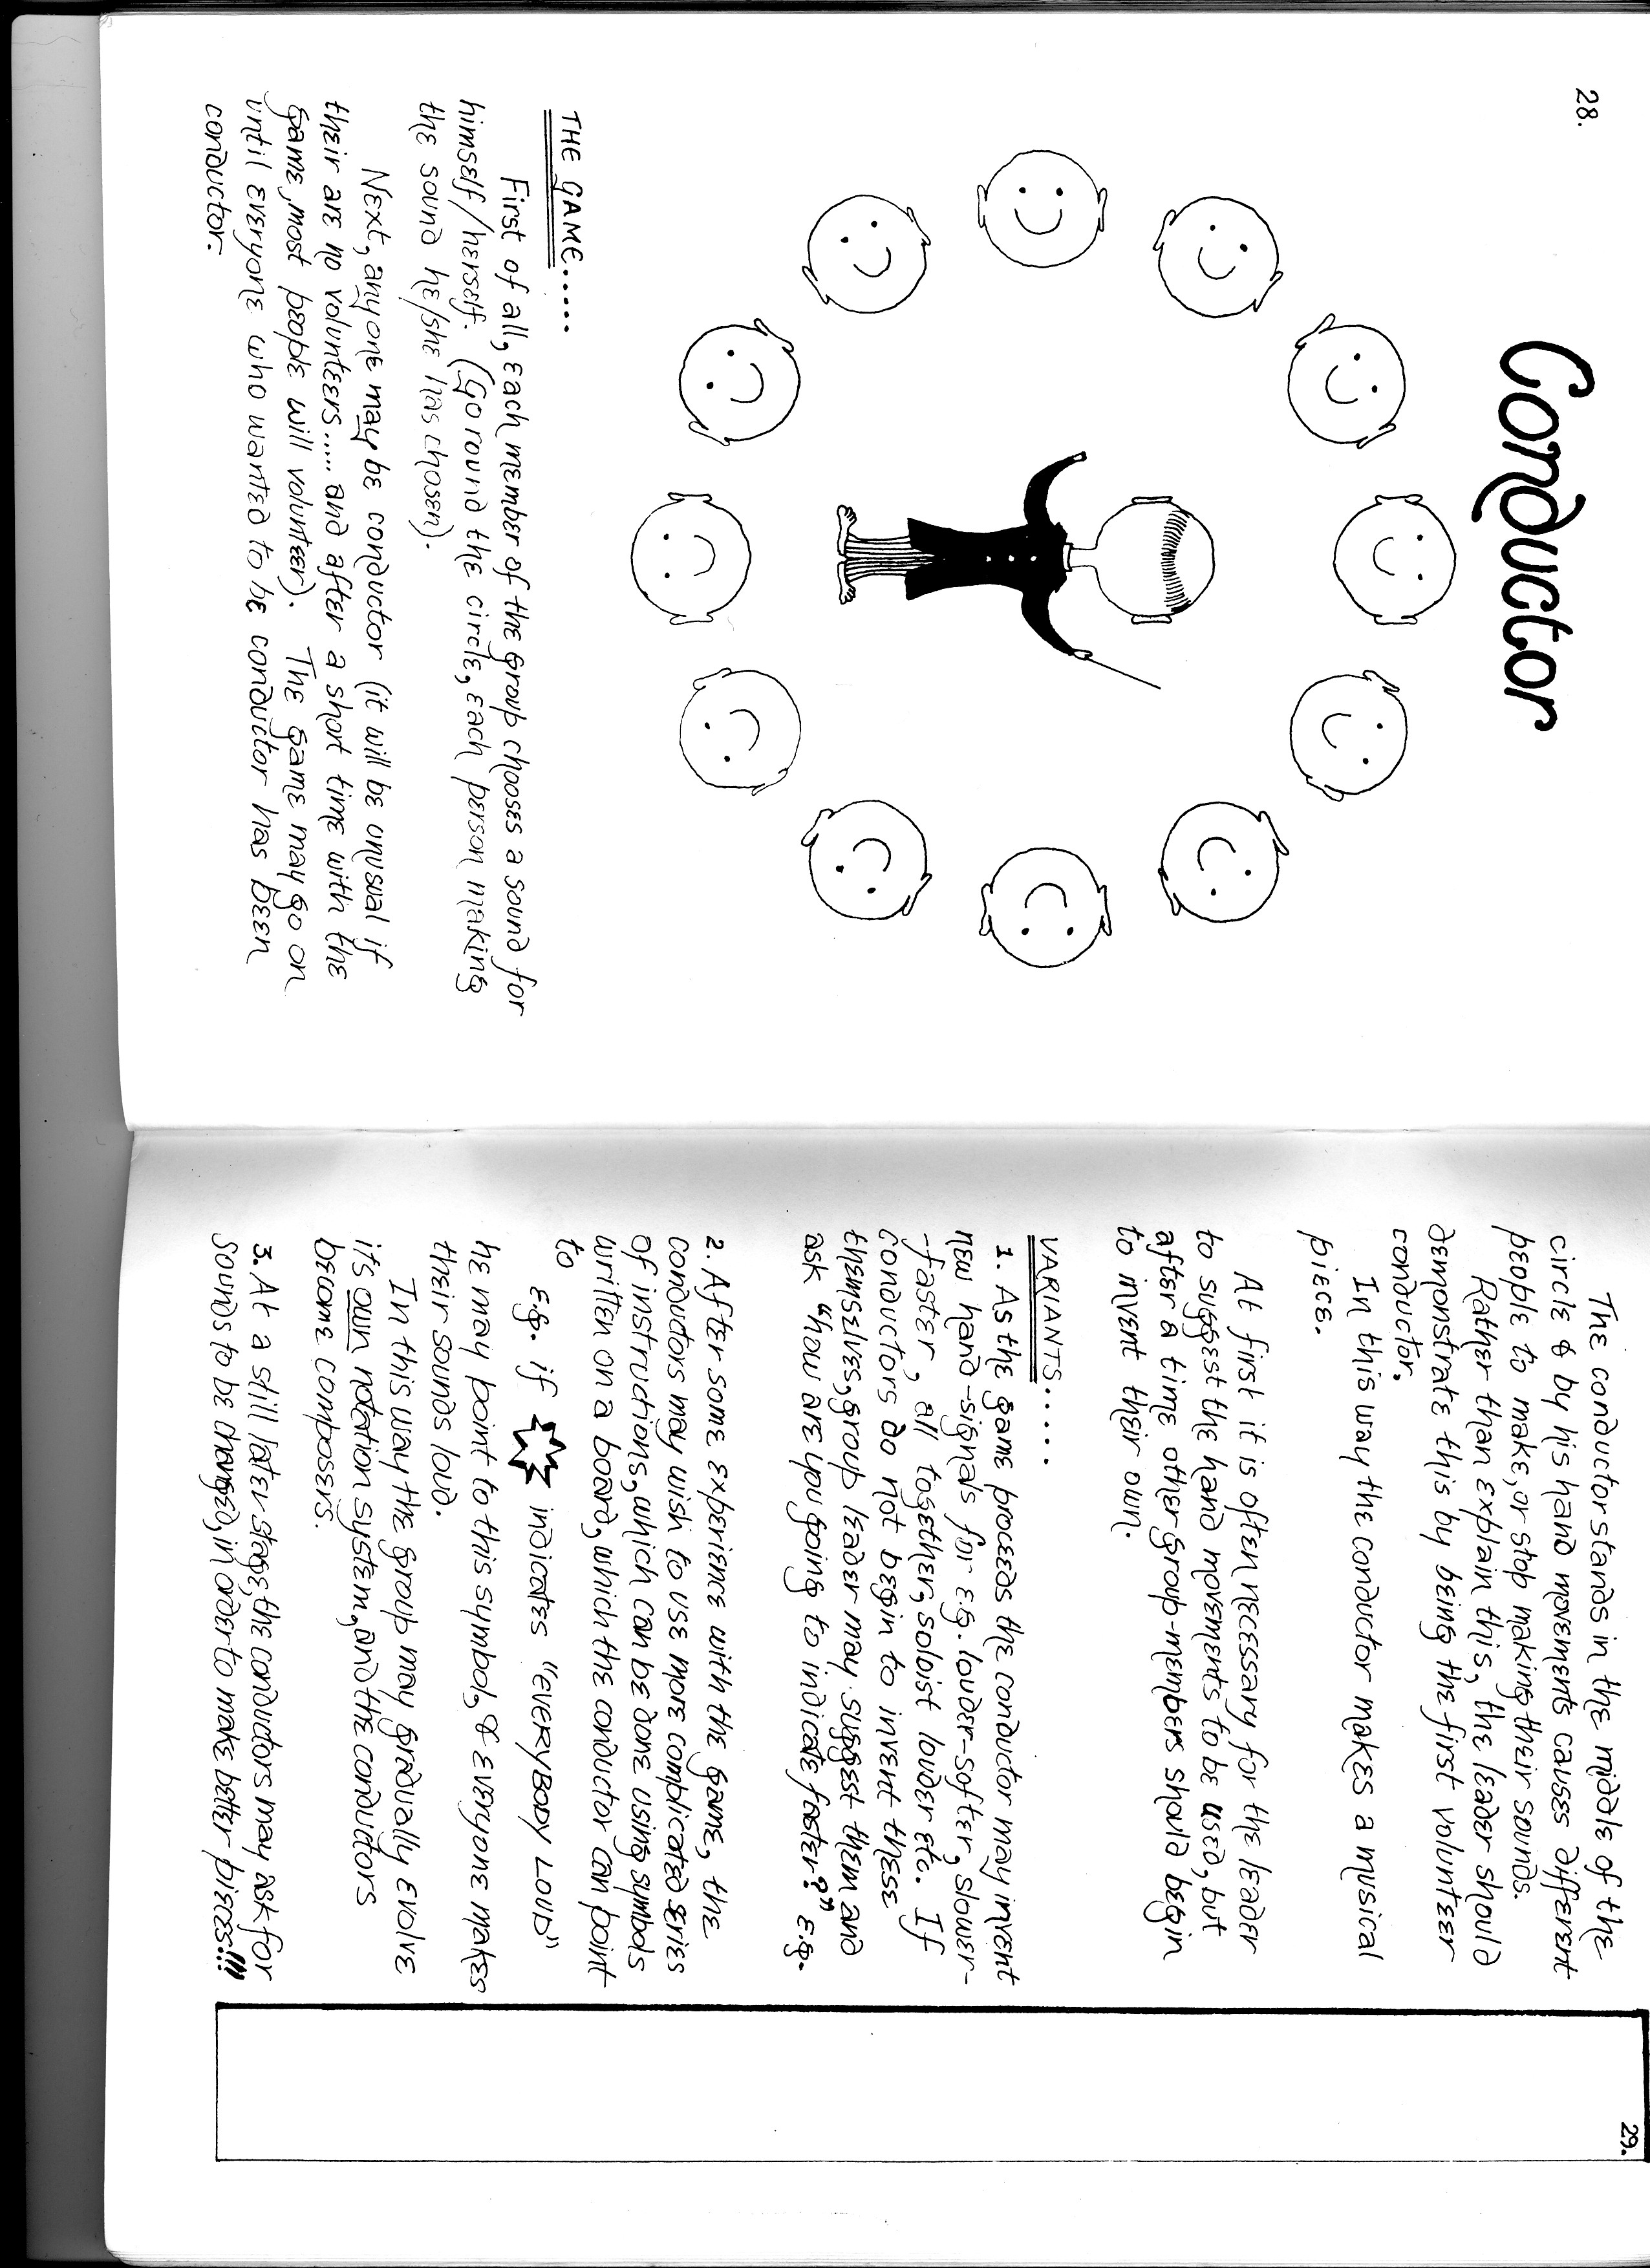 28.
Conductor
THE GAME.....
First of all, each member of the group chooses a sound for
himself/herself. (Go round the circle, each person making
the sound he/she has chosen).
Next, anyone may be conductor (it will be unusual if
their are no volunteers..... and after a short time with the
game, most people will volunteer). The game may go on
until everyone who wanted to be conductor has been
conductor.
29.
The conductor stands in the middle of the
circle & by his hand movements causes different
people to make, or stop making their sounds.
Rather than explain this, the leader should
demonstrate this by being the first volunteer
conductor.
In this way the conductor makes a musical
piece.
At first it is often necessary for the leader
to suggest the hand movements to be used, but
after a time other group-members should begin
to invent their own.
VARIANTS.....
1. As the game proceeds the conductor may invent
new hand-signals for e.g. louder-softer, slower-
-faster, all together, soloist louder etc. If
conductors do not begin to invent these
themselves, group leader may suggest them and
ask "how are you going to indicate faster?" e.g.
2. After some experience with the game, the
conductors may wish to use more complicated series
of instructions, which can be done using symbols
written on a board, which the conductor can point
to
e.g. if indicates "EVERYBODY LOUD"
he may point to this symbol, & everyone makes
their sounds loud.
In this way the group may gradually evolve
its own notation system, and the conductors
become composers.
3. At a still later stage, the conductors may ask for
sounds to be changed, in order to make better pieces!!!